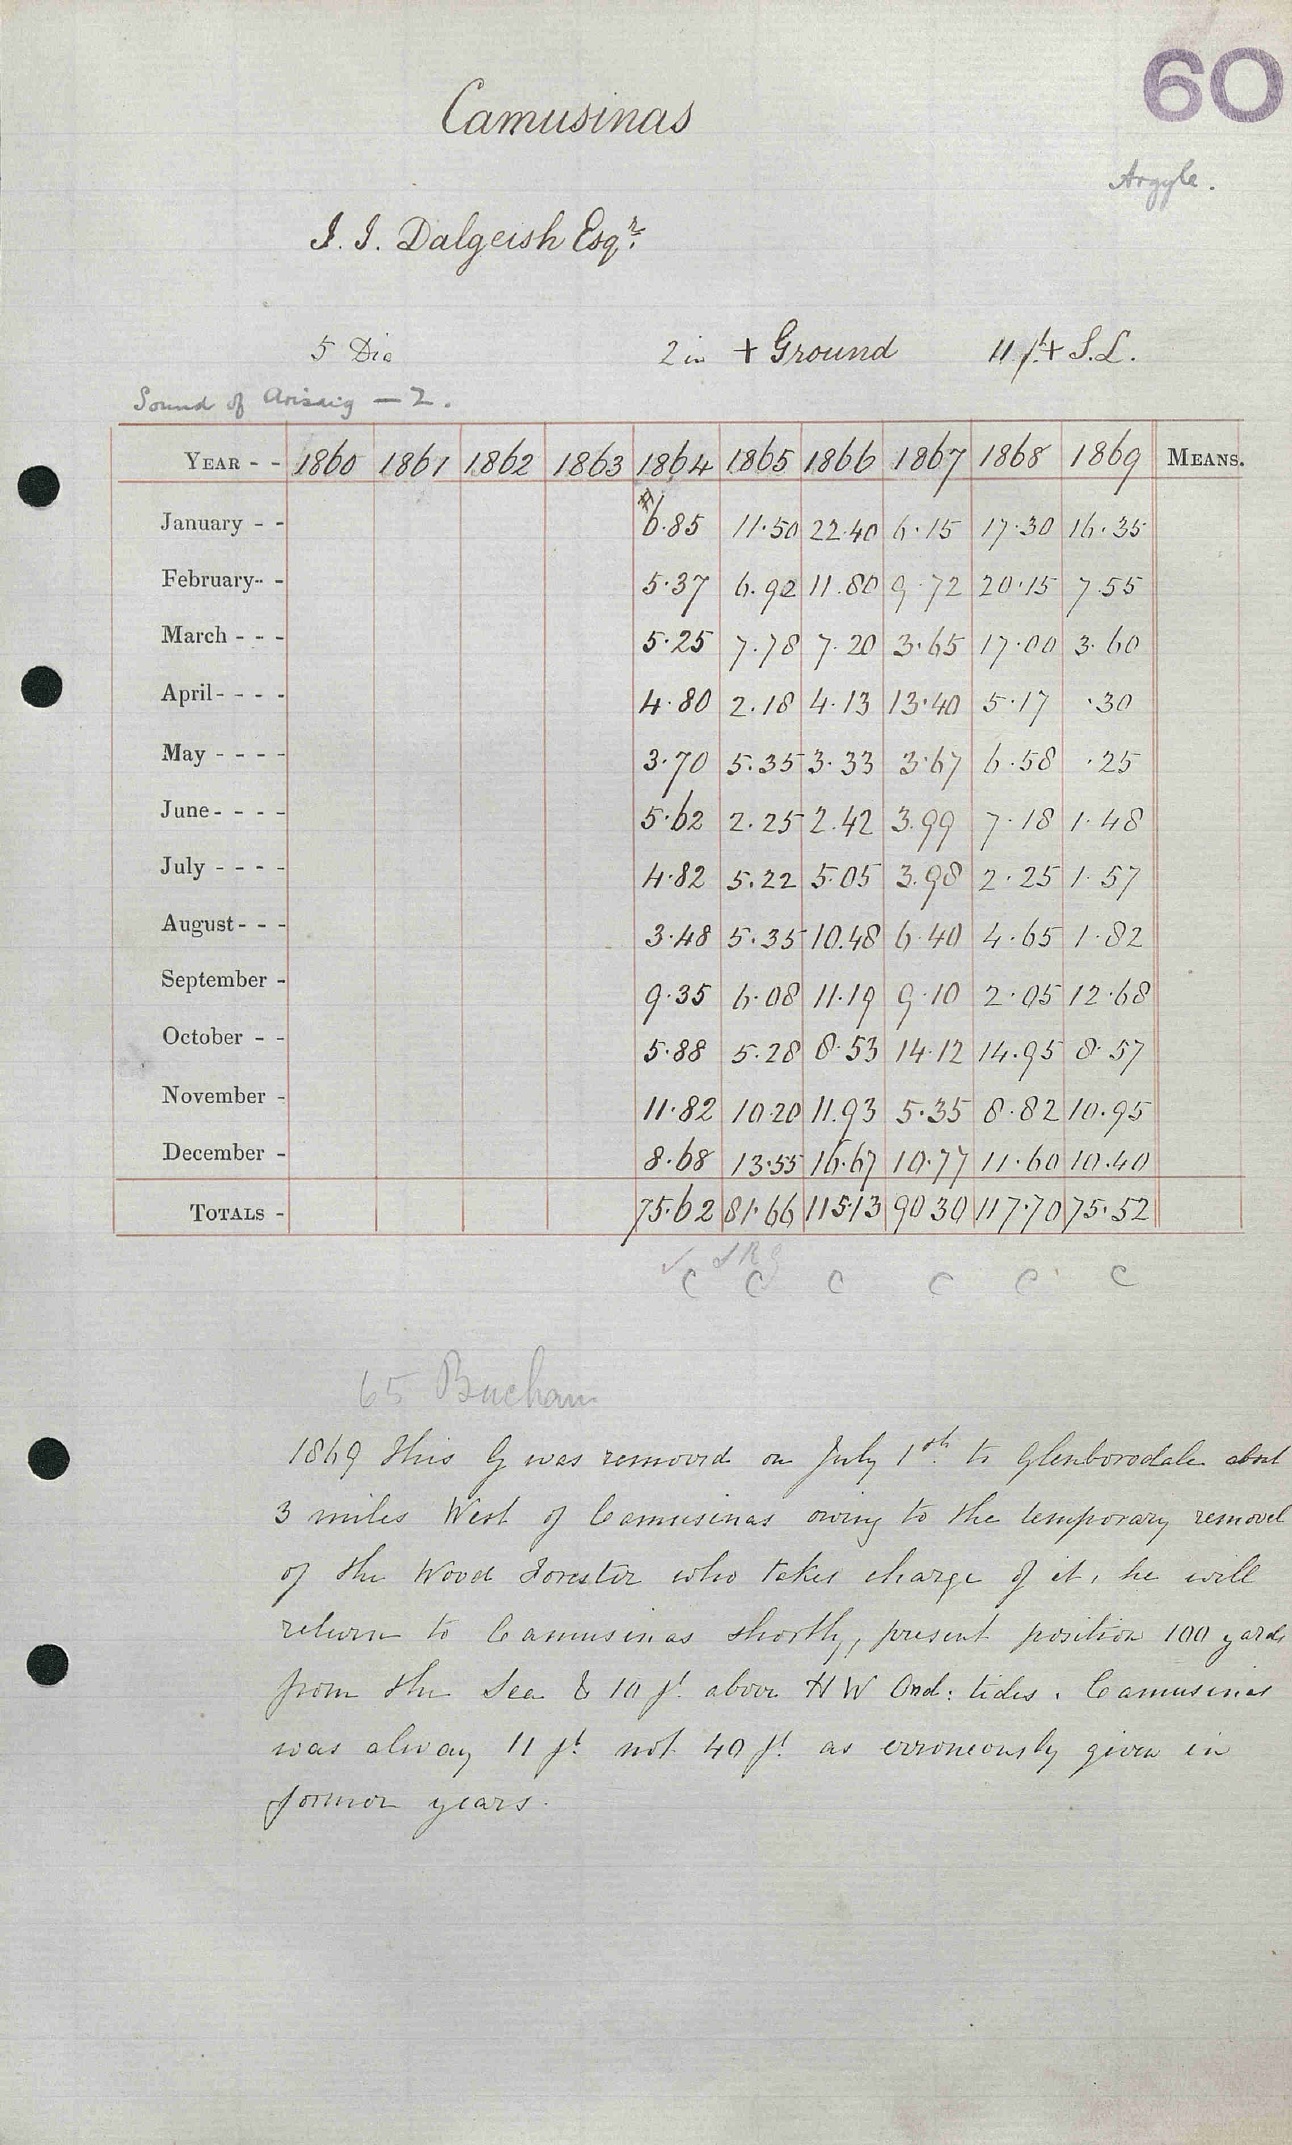 60
Camusinas
Argyle.
J. J. Dalgeish Esqr.
5 Dia 2 in + Ground 11 ft + S.L.
Sound of Arisaig — 2.
YEAR - - 1860 1861 1862 1863 1864 1865 1866 1867 1868 1869 MEANS.
January - - 6.85 11.50 22.40 6.15 17.30 16.35
February- - 5.37 6.92 11.80 9.72 20.15 7.55
March - - - 5.25 7.78 7.20 3.65 17.00 3.60
April - - - - 4.80 2.18 4.13 13.40 5.17 .30
May - - - - 3.70 5.35 3.33 3.67 6.58 .25
June - - - - 5.62 2.25 2.42 3.99 7.18 1.48
July - - - - 4.82 5.22 5.05 3.98 2.25 1.57
August - - - 3.48 5.35 10.48 6.40 4.65 1.82
September - 9.35 6.08 11.19 9.10 2.05 12.68
October - - 5.88 5.28 8.53 14.12 14.95 8.57
November - 11.82 10.20 11.93 5.35 8.82 10.95
December - 8.68 13.55 16.67 10.77 11.60 10.40
TOTALS - 75.62 81.66 115.13 90 30 117.70 75.52
C C C C C C
65 Buchan
1869 This G was removed on July 1st to Glenborodale abut
3 miles West of Camusinas owing to the temporary removel
of the Wood Forester who takes charge of it, he will
return to Camusinas shortly, present position 100 yards
from the Sea & 10 ft above H W Ond: tides. Camusinas
was alway 11 ft not 40 ft as erroneously given in
former years.